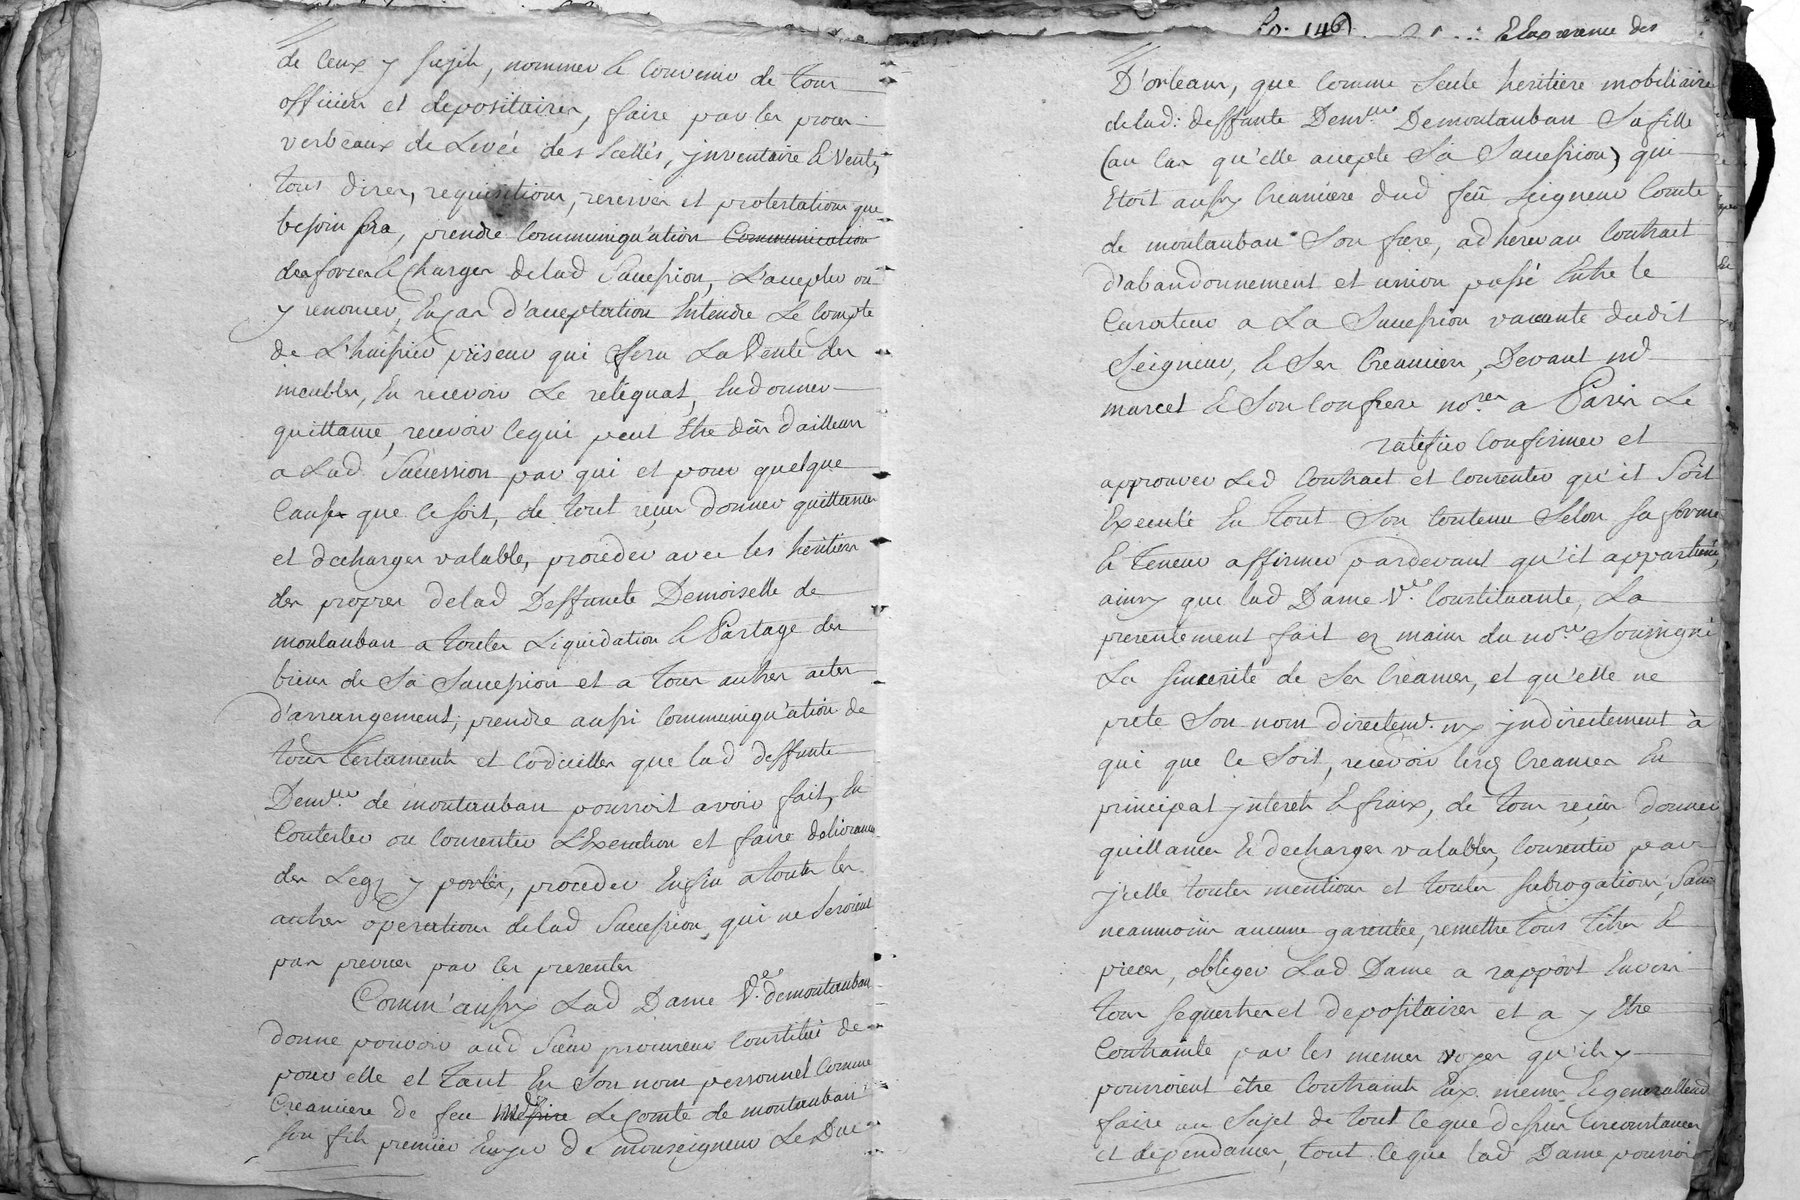 de Ceux y sujets, nommer & convenir de tous
officiers et depositaires, faire par les procès
verbeaux de Levée des scellés, jnventaire & Vente,
tous dires, requisitions, reserves et protestations que
besoin sera, prendre Communiqu'ation Communication
des forces & Charges delad Succession, L'accepter ou
y renoncer, En cas d'acceptation Entendre Le compte
de L'huissier priseur qui fera La Vente des
meubles, En recevoir Le reliquat, En donner
quittance, recevoir cequi peut Etre dû d'ailleurs
a Lad. Succession par qui et pour quelque
Cause que ce soit, de tout reçu donner quittances
et decharges valables, proceder avec les heritiers
des propres delad Deffuncte Demoiselle de
montauban a toutes Liquidation & Partage des
biens de Sa Succession et a tous autres actes
d'arrangement, prendre aussi Communiqu'ation de
tous testaments et Codicilles que lad deffunte
Demlle de montauban pourroit avoir fait, En
Contester ou consentir L'Execution et faire delivrance
des Legs y portés, proceder Enfin a toutes les
autres operations delad Succession, qui ne seroient
pas prevues par les presentes
Comm'aussy Lad Dame Ve demontauban
donne pouvoir aud Sieur procureur Constitué de
pour elle et tant En Son nom personnel Comme
Creanciere de feu Le Comte de montauban
son fils premier Ecuyer de monseigneur Le Duc
fo: 146 Et en presence des
D'orleans, que comme seule heritiere mobiliaire
delad: deffunte Demlle Demontauban Sa fille
(au cas qu'elle accepte Sa Succession) qui
Etoit aussy Creanciere dud feu Seigneur Comte
de montauban Son frere, adherer au Contract
d'abandonnement et union passé Entre le
Curateur a La Succession vacante dudit
Seigneur, & Ses Creanciers, Devant md
marcet & Son Confrere nores a Paris Le
ratifier Confirmer et
approuver Led Contract et consentir qu'il Soit
Executé En tout Son Contenu Selon sa forme
& teneur affirmer pardevant qu'il appartiendra,
ainsy que lad Dame Ve Constituante, La
presentement fait es mains du nore Soussigné
La sincerité de Ses Creances, et qu'elle ne
prete Son nom directemt. ny jndirectement à
qui que ce Soit, recevoir lesd Creances En
principal jnterets & fraix, de tout reçu donner
quittances & decharges valables, Consentir par
jcelle toutes mentions et toutes subrogations, sans
neanmoins aucune garentie, remettre tous titres &
pieces, obliger Lad Dame a rapport Envers
tous sequestres et depositaires et a y Etre
Contrainte par les memes voyes qu'ils y
pourroient être Contraints Eux memes & generallement
faire au Sujet de tout ceque dessus Circonstances
et dependances, tout ceque lad Dame pourroit